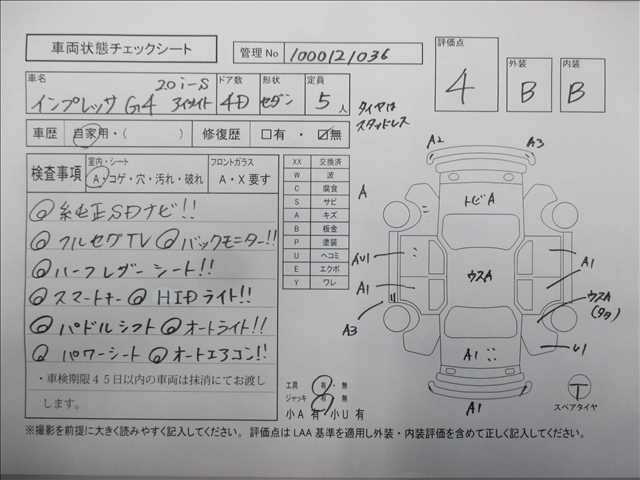 車両状態チェックシート
管理No 1000121036
評価点 4
外装 B
内装 B
車名 インプレッサ G4 2.0i-S アイサイト
ドア数 4D
形状 セダン
定員 5人
タイヤは
スタッドレス
車歴 自家用・( )
修復歴 □有・☑無
検査事項
室内・シート
A・コゲ・穴・汚れ・破れ
フロントガラス
A・X要す
◎純正SDナビ!!
◎フルセグTV ◎バックモニター!!
◎ハーフレザーシート!!
◎スマートキー ◎HIDライト!!
◎パドルシフト ◎オートライト!!
◎パワーシート ◎オートエアコン!!
・車検期限45日以内の車両は抹消にてお渡し
します。
XX 交換済
W 波
C 腐食
S サビ
A キズ
B 板金
P 塗装
U ヘコミ
E エクボ
Y ワレ
A2
A3
A
トビA
AU1
A1
A1
ウスA
A3
ウスA
(タタ)
A1
U1
A1
工具 有・無
ジャッキ 有・無
小A 有 小U 有
T
スペアタイヤ
※撮影を前提に大きく読みやすく記入してください。 評価点は LAA 基準を適用し外装・内装評価を含めて正しく記入してください。